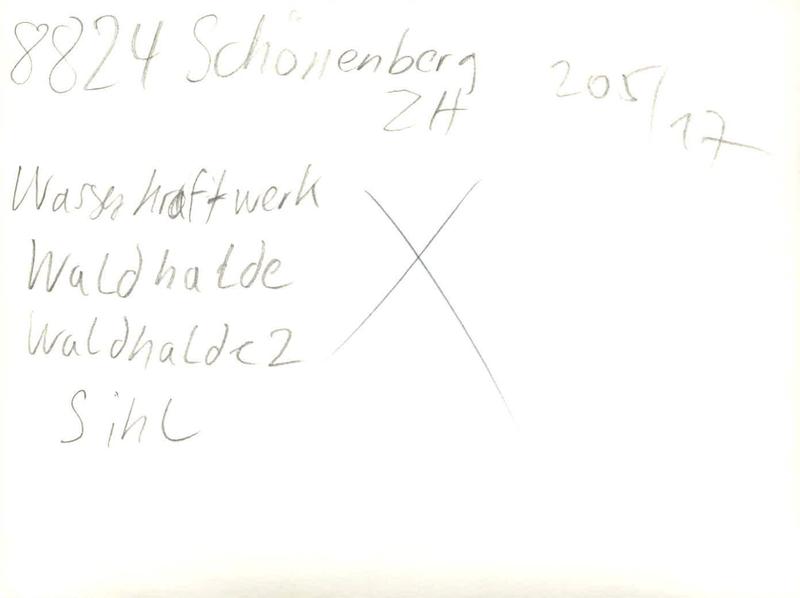 8824 Schönenberg
ZH
205/17
Wasserkraftwerk
Waldhalde
Waldhalde 2
Sihl